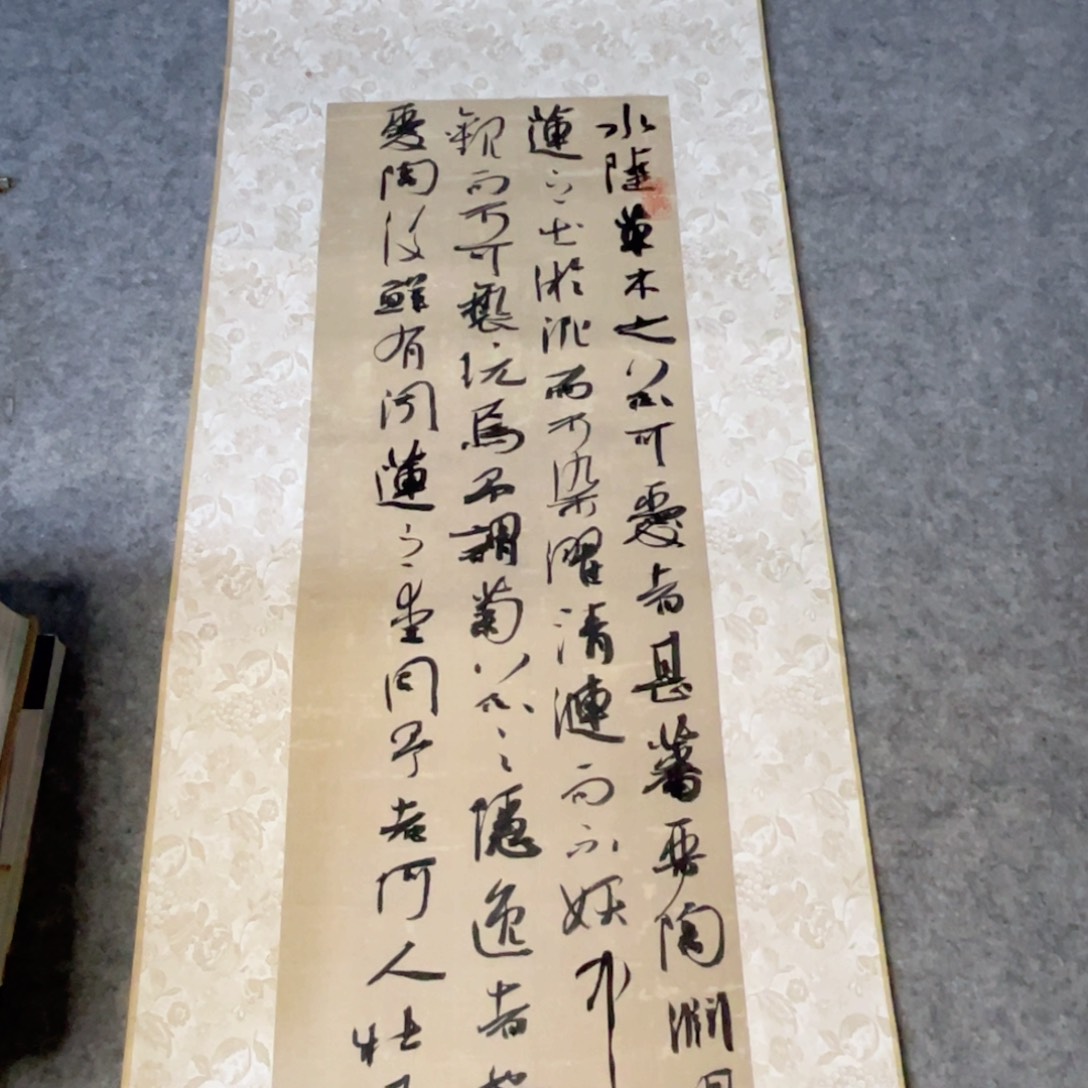 水陸草木之花可愛者甚蕃晉陶淵
蓮之出淤泥而不染濯清漣而不妖中
觀而不可褻玩焉予謂菊花之隱逸者也
愛陶後鮮有聞蓮之愛同予者何人牡